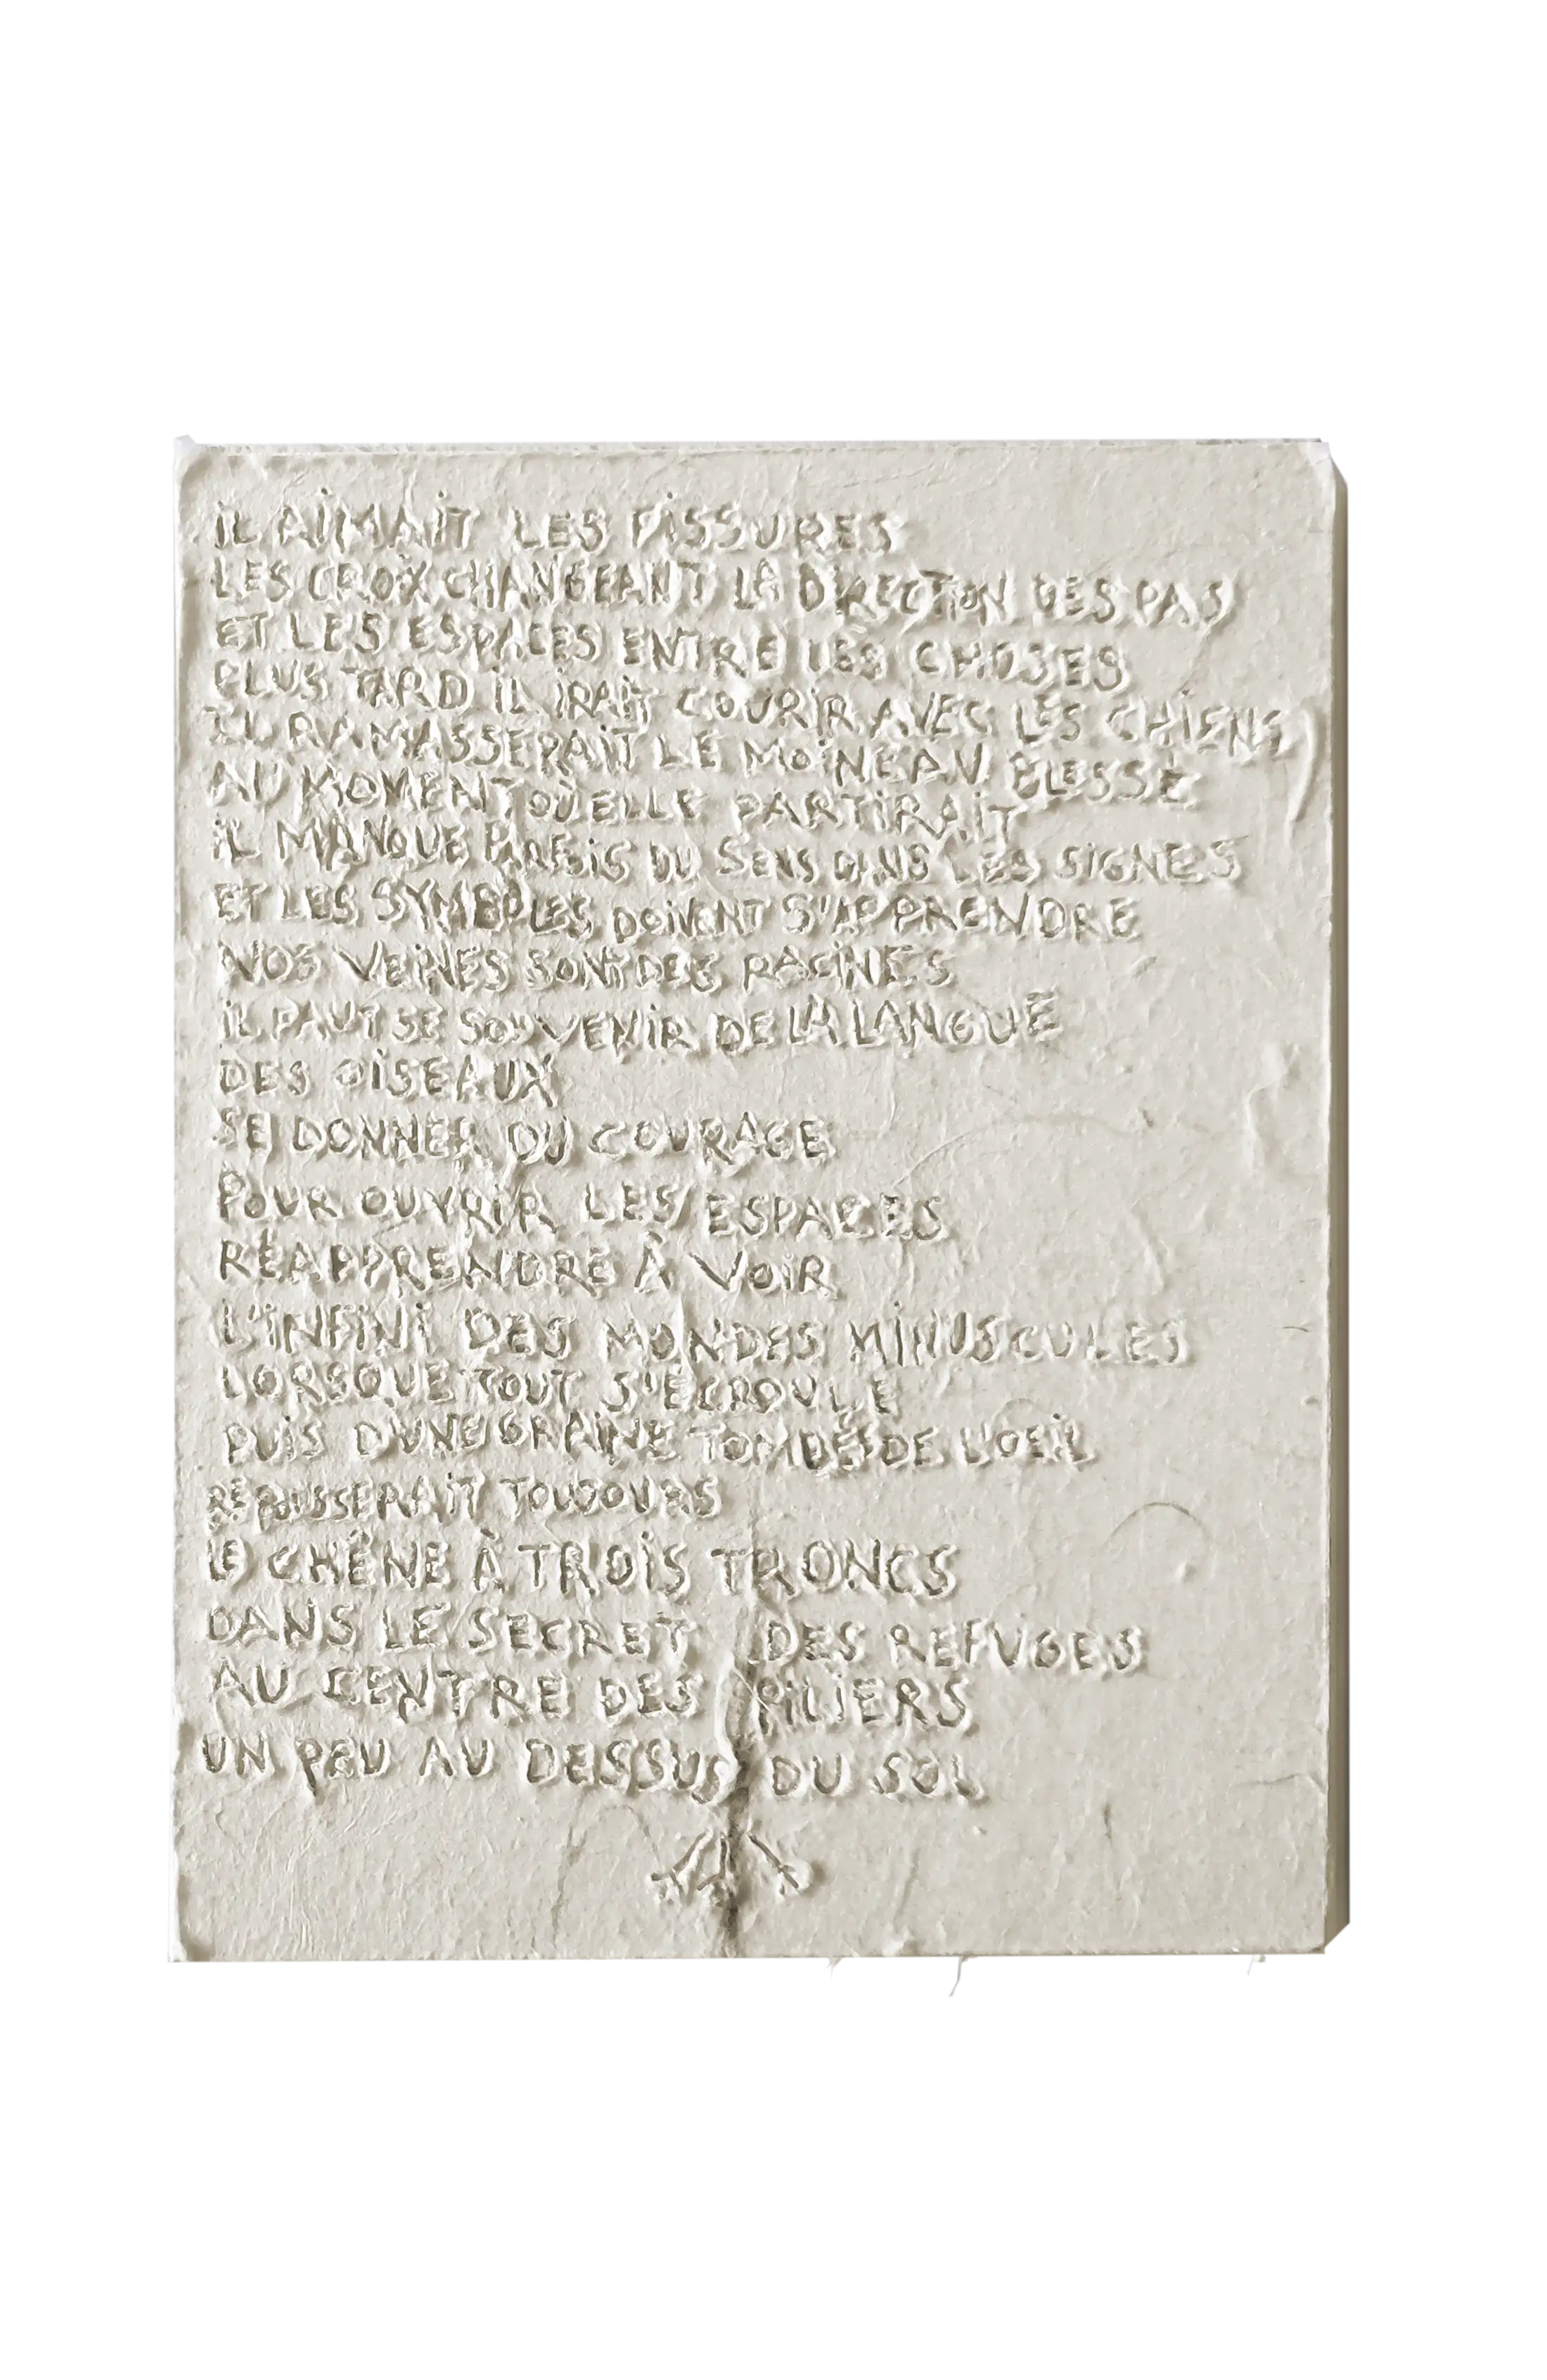 iL AiMAiT LES FiSSURES
LES CROiX CHANGEANT LA DiRECTiON DES PAS
ET LES ESPACES ENTRE LES CHOSES
PLUS TARD iL iRAiT COURiR AVEC LES CHiENS
iL RAMASSERAiT LE MOiNEAU BLESSÉ
AU MOMENT OÙ ELLE PARTiRAiT
iL MANQUE PARFOiS DU SENS DANS LES SiGNES
ET LES SYMBOLES DOiVENT S'APPRENDRE
NOS VEiNES SONT DES RACiNES
iL FAUT SE SOUVENiR DE LA LANGUE
DES OiSEAUX
SE DONNER DU COURAGE
POUR OUVRiR LES ESPACES
RÉAPPRENDRE À VOiR
L'iNFiNi DES MONDES MiNUSCULES
LORSQUE TOUT S'ÉCROULE
PUiS D'UNE GRAiNE TOMBÉE DE L'OEiL
REPOUSSERAiT TOUJOURS
LE CHÊNE À TROiS TRONCS
DANS LE SECRET DES REFUGES
AU CENTRE DES PiLiERS
UN PEU AU DESSUS DU SOL